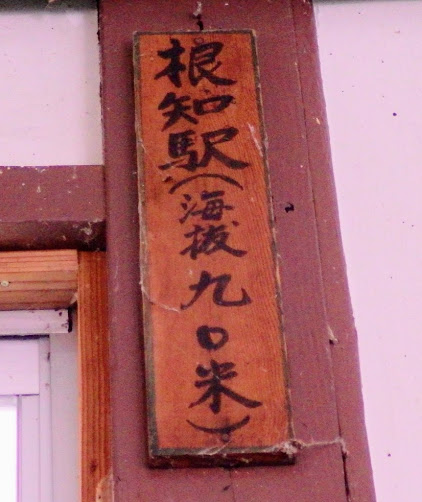 根知駅(海抜九〇米)